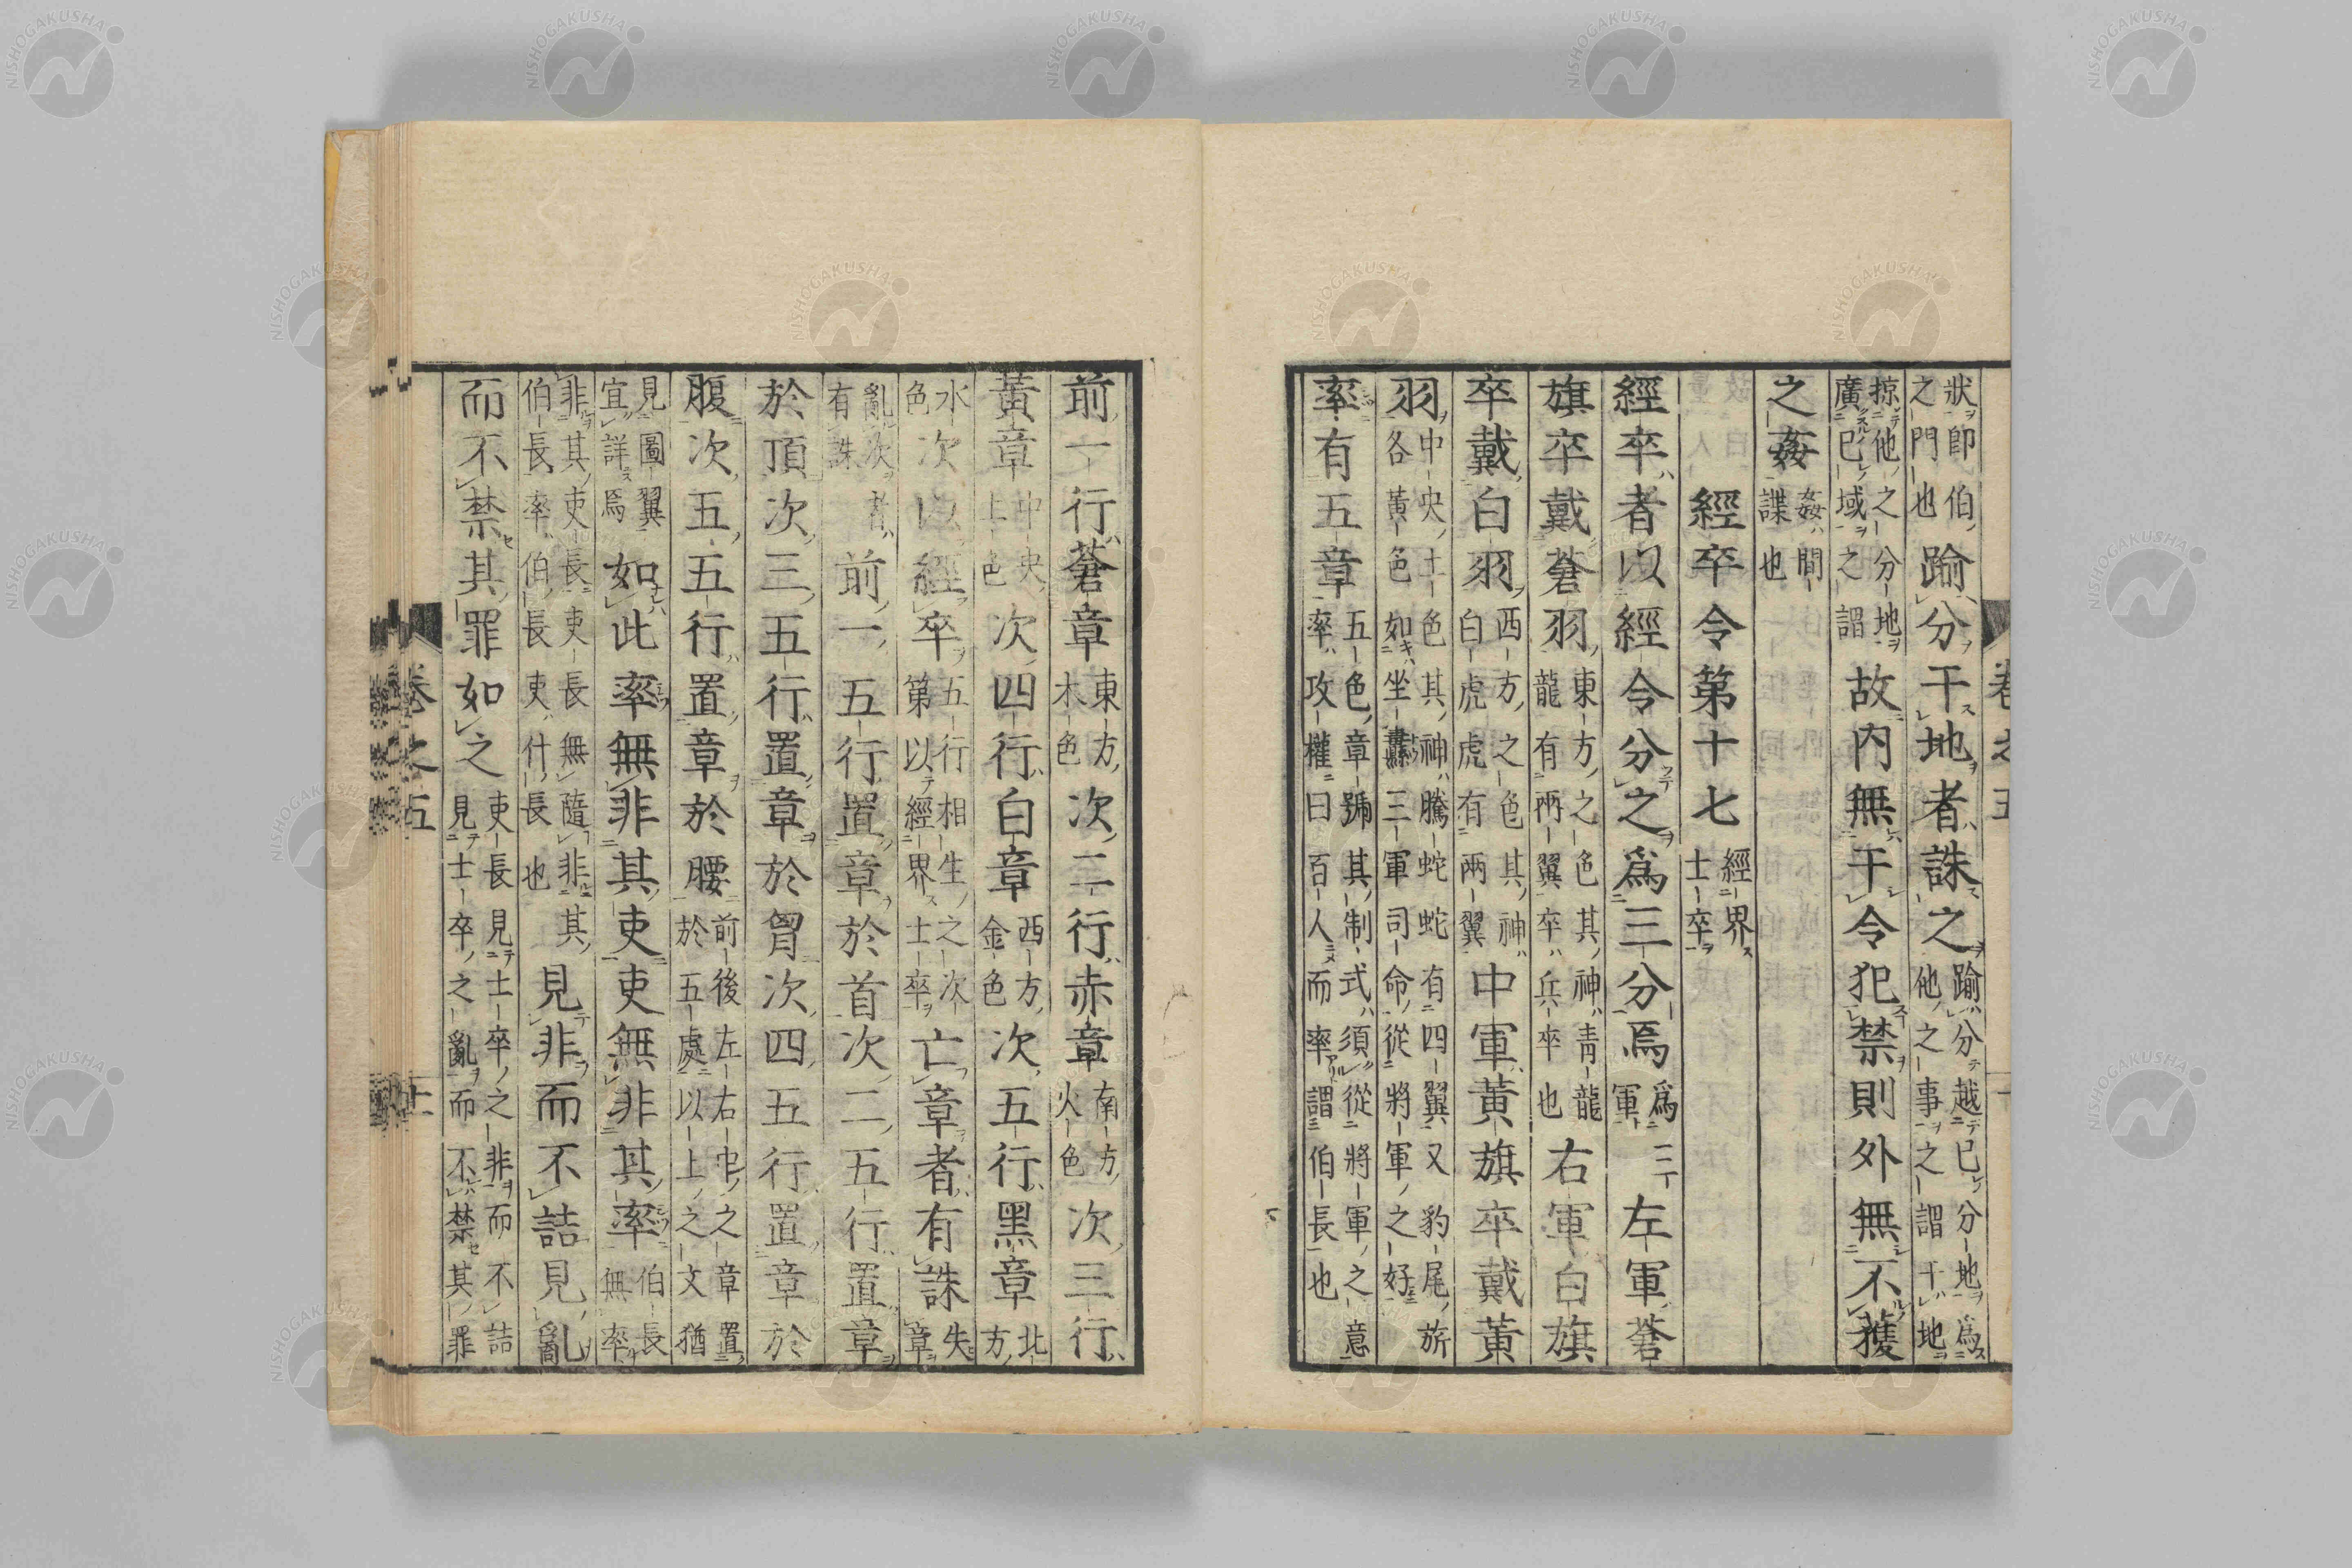 卷之五
狀即伯
之門也
踰分干地者誅之
踰分越已分地爲
他之事之謂干地
掠他之分地
廣已域之謂
故内無干令犯禁則外無不獲
之姦
姦間
諜也
經卒令第十七
經界
士卒
經卒者以經令分之爲三分焉
爲三
軍
左軍蒼
旗卒戴蒼羽
東方之色其神青龍
龍有兩翼卒兵卒也
右軍白旗
卒戴白羽
西方之色其神
白虎虎有兩翼
中軍黃旗卒戴黃
羽
中央土色其神騰蛇蛇有四翼又豹尾旂
各黃色如坐纛三軍司命從將軍之好
率有五章
五色章號其制式須從將軍之意
率攻權曰百人而率謂伯長也
前一行蒼章
東方
木色
次二行赤章
南方
火色
次三行
黃章
中央
土色
次四行白章
西方
金色
次五行黑章
北
方
水
色
次以經卒
五行相生之次
第以經界士卒
亡章者有誅
失
章
亂次者
有誅
前一五行置章於首次二五行置章
於頂次三五行置章於胷次四五行置章於
腹次五五行置章於腰
前後左右中之章置
於五處以上之文猶
見圖翼
宜詳焉
如此率無非其吏吏無非其率
伯長
無率
非其吏長吏長無隨非其
伯長率伯長吏什長也
見非而不詰見亂
而不禁其罪如之
吏長見士卒之非而不詰
見士卒之亂而不禁其罪
卷之五
十一
NISHOGAKUSHA